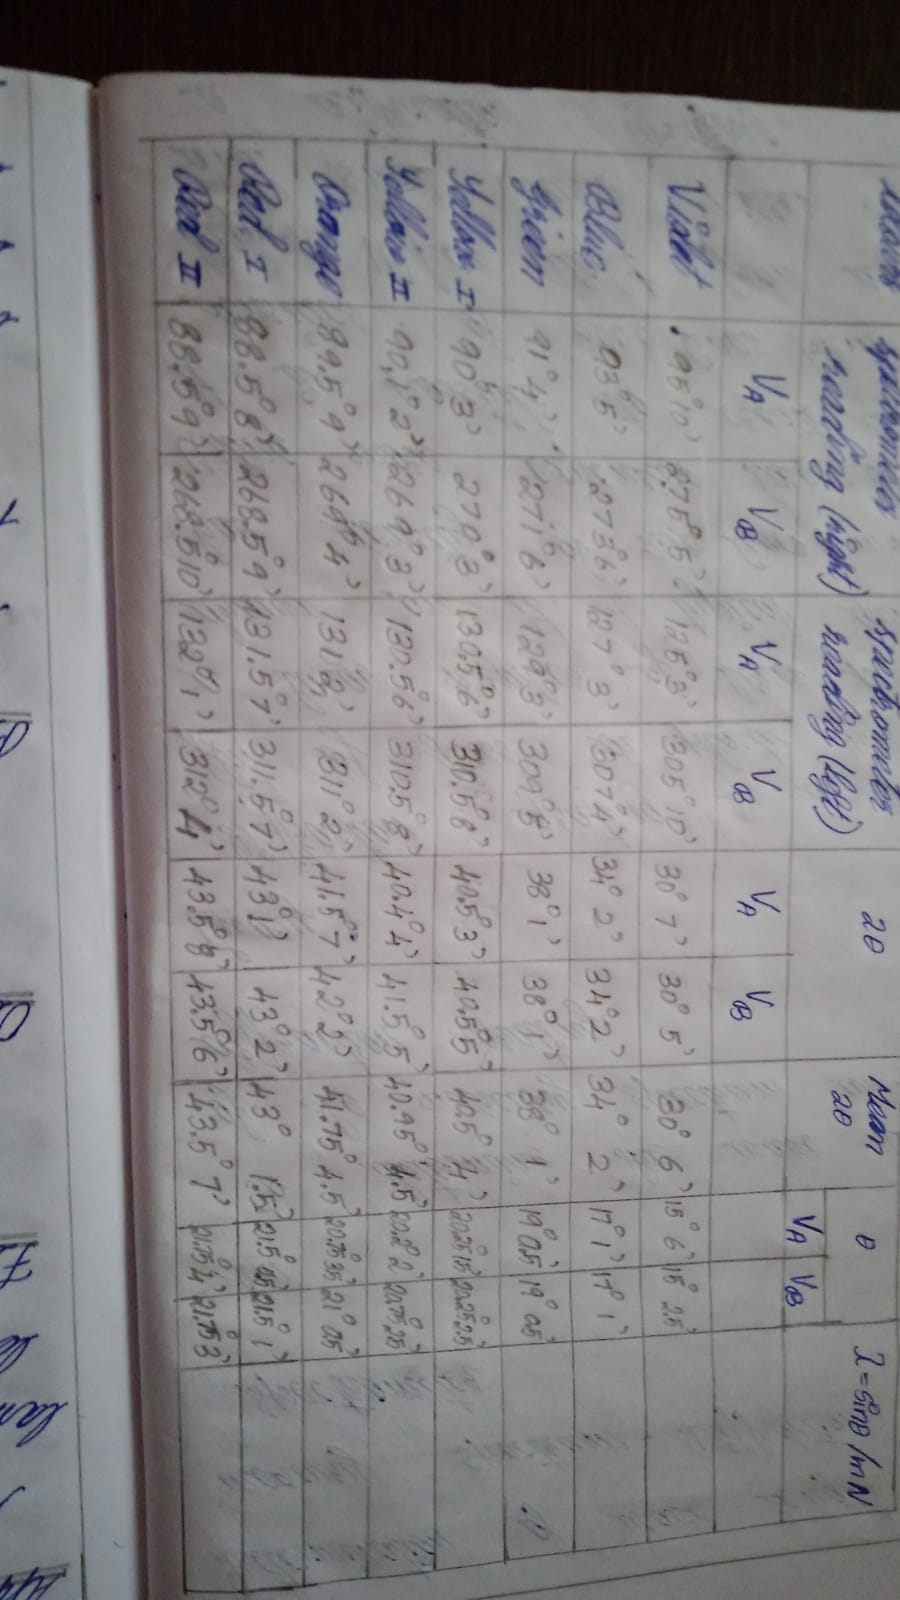 spectrometer reading (right) spectrometer reading (left) 2θ Mean 2θ θ λ = sinθ/mN
VA VB VA VB VA VB VA VB
Violet 95° 10' 275° 5' 125° 3' 305° 10' 30° 7' 30° 5' 30° 6' 15° 6' 15° 2.5'
Blue 93° 5' 273° 6' 127° 3' 307° 4' 34° 2' 34° 2' 34° 2' 17° 1' 17° 1'
Green 91° 4' 271° 6' 129° 3' 309° 5' 38° 1' 38° 1' 38° 1' 19° 0.5' 19° 0.5'
Yellow I 90° 3' 270° 3' 130.5° 6' 310.5° 6' 40.5° 3' 40.5° 5' 40.5° 4' 20.25° 1.5' 20.25° 2.5'
Yellow II 90.1° 2' 269° 3' 130.5° 6' 310.5° 8' 40.4° 4' 41.5° 5' 40.95° 4.5' 20.2° 2' 20.75° 2.5'
Orange 89.5° 9' 269° 4' 131° 2' 311° 2' 41.5° 7' 42° 2' 41.75° 4.5' 20.75° 3.5' 21° 0.5'
Red I 88.5° 8' 268.5° 9' 131.5° 7' 311.5° 7' 43° 1' 43° 2' 43° 1.5' 21.5° 0.5' 21.5° 1'
Red II 88.5° 9' 268.5° 10' 132° 1' 312° 4' 43.5° 8' 43.5° 6' 43.5° 7' 21.75° 4' 21.75° 3'